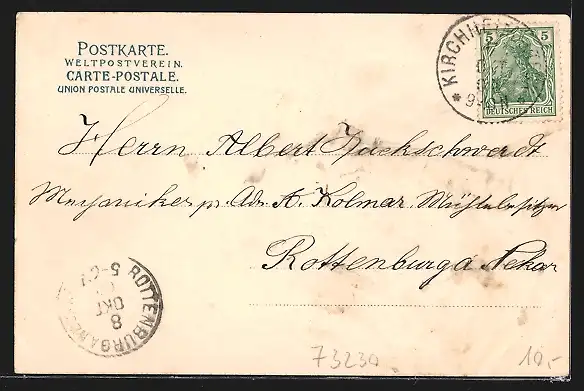 POSTKARTE.
WELTPOSTVEREIN.
CARTE-POSTALE.
UNION POSTALE UNIVERSELLE.
KIRCHHEI
5 5
DEUTSCHES REICH
Herrn Albert Zuckschwerdt
Mechaniker pr. Adr. A. Kolmar
Rottenburg a Nekar
ROTTENBURG
8
OKT
73230
10,-